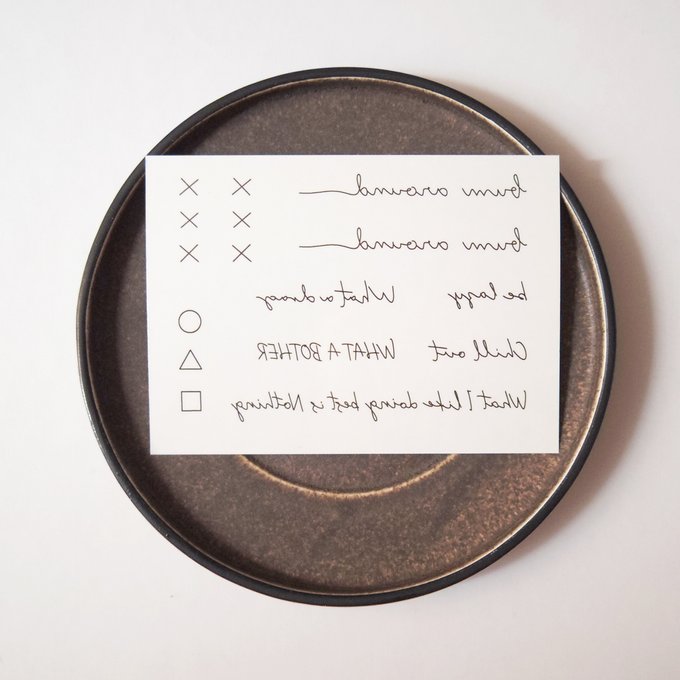 bum around
bum around
be lazy What a drag
Chill out WHAT A BOTHER
What I like doing best is Nothing